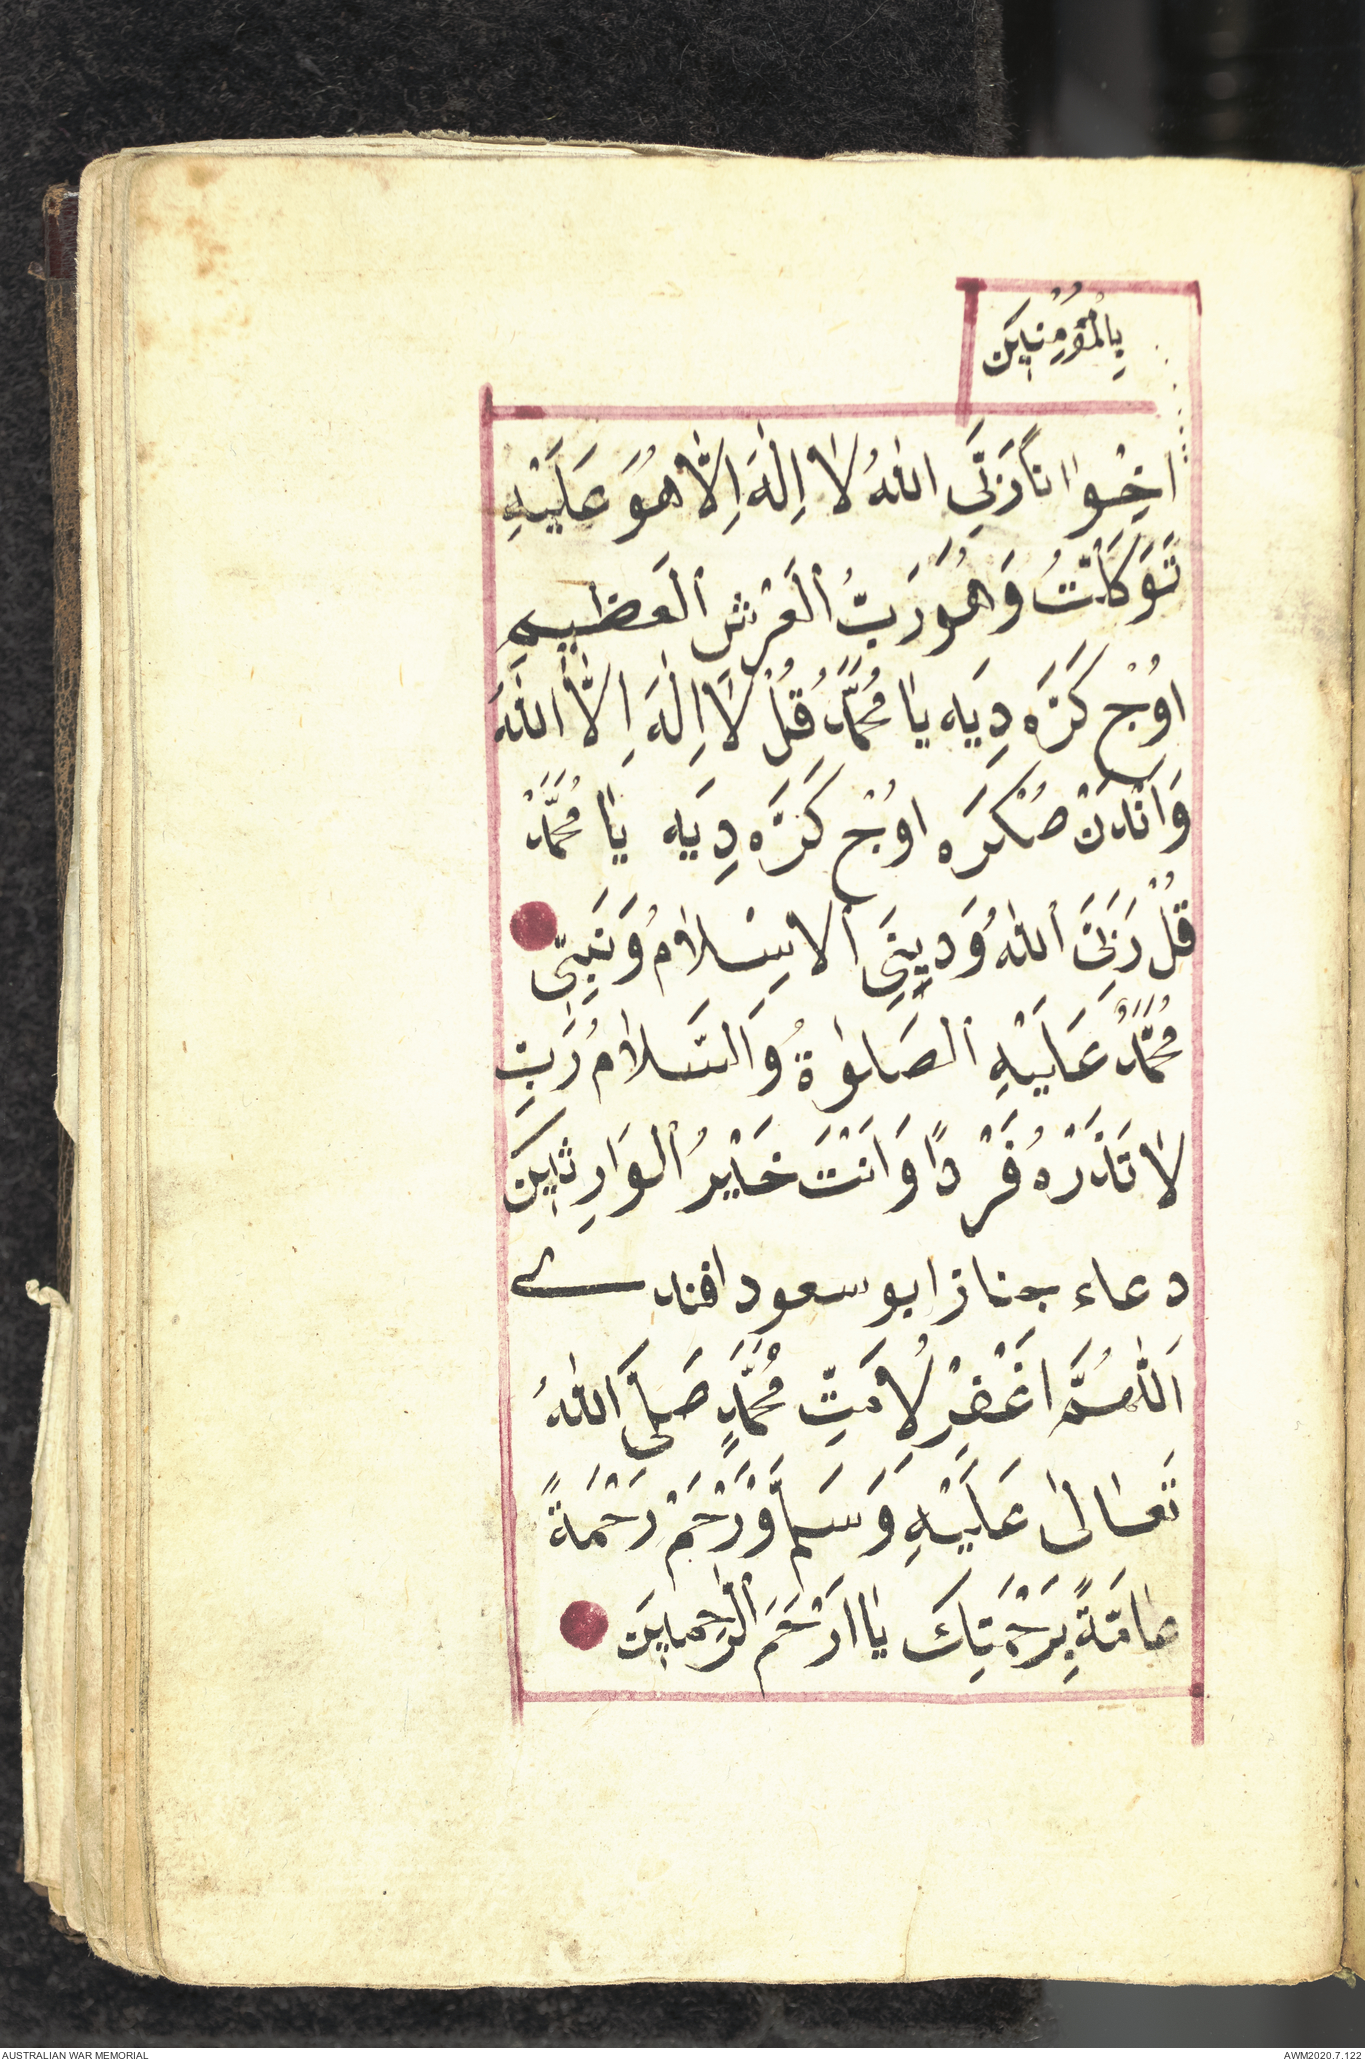 بِالْمُؤْمِنِينَ
اِخْوَانًا رَبِّىَ اللهُ لَا اِلٰهَ اِلَّا هُوَ عَلَيْهِ
تَوَكَّلْتُ وَهُوَ رَبُّ الْعَرْشِ الْعَظِيمِ
اوُچْ كَرَّه دِيَه يَا مُحَمَّدُ قُلْ لَا اِلٰهَ اِلَّا اللهُ
وَاَنْدَنْ صُكْرَه اوُچْ كَرَّه دِيَه يَا مُحَمَّدْ
قُلْ رَبِّىَ اللهُ وَدِينِىَ الْاِسْلَامُ وَنَبِيِّى
مُحَمَّدٌ عَلَيْهِ الصَّلٰوةُ وَالسَّلَامُ رَبِّ
لَا تَذَرْهُ فَرْدًا وَاَنْتَ خَيْرُ الْوَارِثِينَ
دعاء جناز ابو سعود افندى
اَللّٰهُمَّ اغْفِرْ لِاُمَّتِ مُحَمَّدٍ صَلَّى اللهُ
تَعَالٰى عَلَيْهِ وَسَلَّمْ وَرْحَمْ رَحْمَةً
عَامَّةً بِرَحْمَتِكَ يَا اَرْحَمَ الرَّحِمِينَ
AUSTRALIAN WAR MEMORIAL
AWM2020.7.122